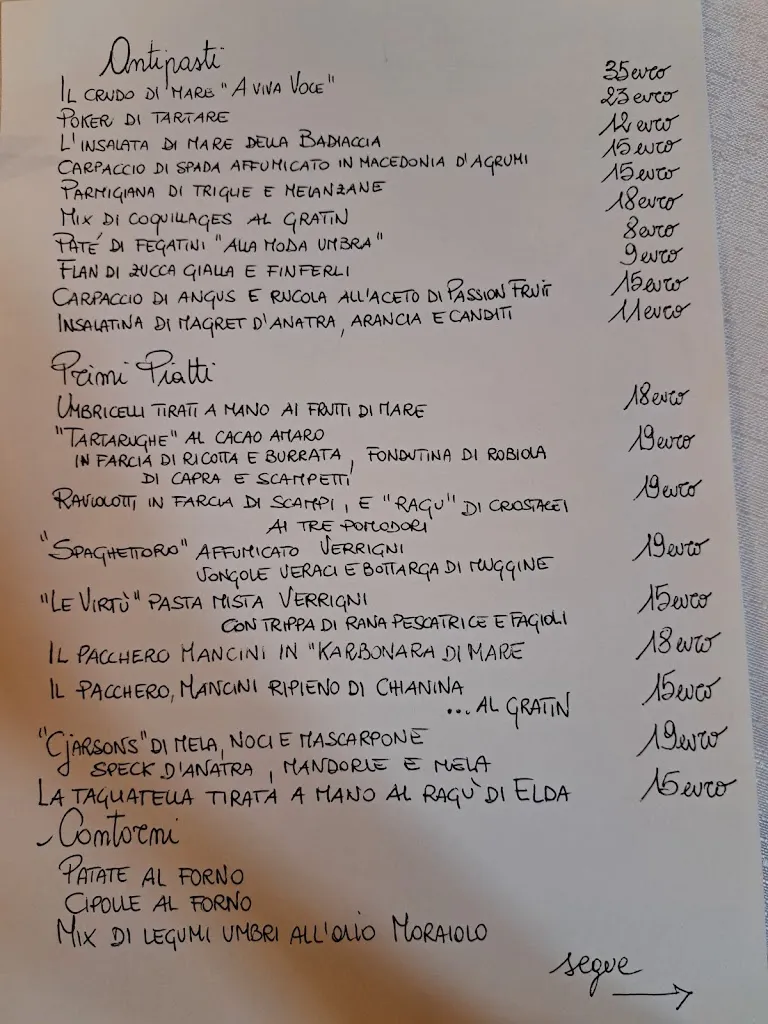 Antipasti
IL CRUDO DI MARE "A VIVA VOCE" 35 euro
POKER DI TARTARE 23 euro
L'INSALATA DI MARE DELLA BADIACCIA 12 euro
CARPACCIO DI SPADA AFFUMICATO IN MACEDONIA D'AGRUMI 15 euro
PARMIGIANA DI TRIGLIE E MELANZANE 15 euro
MIX DI COQUILLAGES AL GRATIN 18 euro
PATÉ DI FEGATINI "ALLA MODA UMBRA" 8 euro
FLAN DI ZUCCA GIALLA E FINFERLI 9 euro
CARPACCIO DI ANGUS E RUCOLA ALL'ACETO DI PASSION FRUIT 15 euro
INSALATINA DI MAGRET D'ANATRA, ARANCIA E CANDITI 11 euro
Primi Piatti
UMBRICELLI TIRATI A MANO AI FRUTTI DI MARE 18 euro
"TARTARUGHE" AL CACAO AMARO 19 euro
IN FARCIA DI RICOTTA E BURRATA, FONDUTINA DI ROBIOLA
DI CAPRA E SCAMPETTI
RAVIOLOTTI IN FARCIA DI SCAMPI, E "RAGU" DI CROSTACEI 19 euro
AI TRE POMODORI
"SPAGHETTORO" AFFUMICATO VERRIGNI 19 euro
VONGOLE VERACI E BOTTARGA DI MUGGINE
"LE VIRTÙ" PASTA MISTA VERRIGNI 15 euro
CON TRIPPA DI RANA PESCATRICE E FAGIOLI
IL PACCHERO MANCINI IN "KARBONARA DI MARE 18 euro
IL PACCHERO, MANCINI RIPIENO DI CHIANINA 15 euro
... AL GRATIN
"CJARSONS" DI MELA, NOCI E MASCARPONE 19 euro
SPECK D'ANATRA, MANDORLE E MELA
LA TAGLIATELLA TIRATA A MANO AL RAGÙ DI ELDA 15 euro
Contorni
PATATE AL FORNO
CIPOLLE AL FORNO
MIX DI LEGUMI UMBRI ALL'OLIO MORAIOLO
segue →